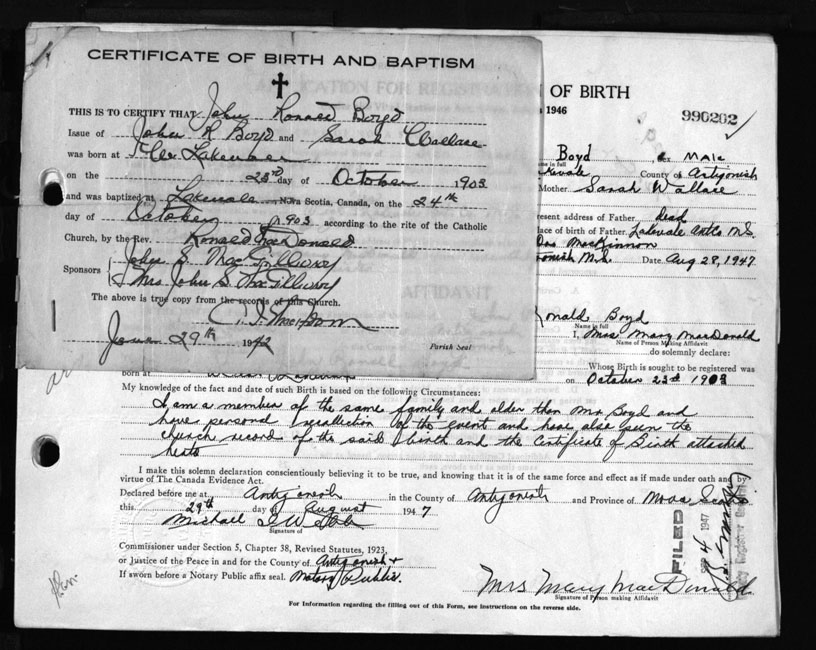 CERTIFICATE OF BIRTH AND BAPTISM
THIS IS TO CERTIFY THAT John Ronald Boyd
Issue of John R Boyd and Sarah Wallace
was born at
on the 23rd day of October 1903
and was baptized at Lakevale Nova Scotia, Canada, on the 24th
day of October 1903 according to the rite of the Catholic
Church, by the Rev. Ronald MacDonald
Sponsors John S. MacGillivray
Mrs John S. MacGillivray
The above is a true copy from the records of this Church.
29th 1942 Parish Seal
OF BIRTH
1946
990202
Boyd Sex Male
County of Antigonish
Mother Sarah Wallace
present address of Father dead
place of birth of Father Lakevale Antig N.S.
MacKinnon
N.S. Date Aug 28, 1947
Ronald Boyd
Name in full
I, Mrs Mary MacDonald
Name of Person Making Affidavit
do solemnly declare:
Whose Birth is sought to be registered was
born at on October 23rd 1903
My knowledge of the fact and date of such Birth is based on the following Circumstances:
I am a member of the same family and older than Mr Boyd and
have personal recollection of the event and have also seen the
church record of the said birth and the Certificate of Birth attached
hereto
I make this solemn declaration conscientiously believing it to be true, and knowing that it is of the same force and effect as if made under oath and by
virtue of The Canada Evidence Act.
Declared before me at Antigonish in the County of Antigonish and Province of Nova Scotia
this 29th day of August 1947
Michael
Signature of
Commissioner under Section 5, Chapter 38, Revised Statutes, 1923,
or Justice of the Peace in and for the County of Antigonish +
If sworn before a Notary Public affix seal. Notary Public.
FILED
SEP 4 1947
Mrs Mary MacDonald
Signature of Person making Affidavit
For Information regarding the filling out of this Form, see instructions on the reverse side.